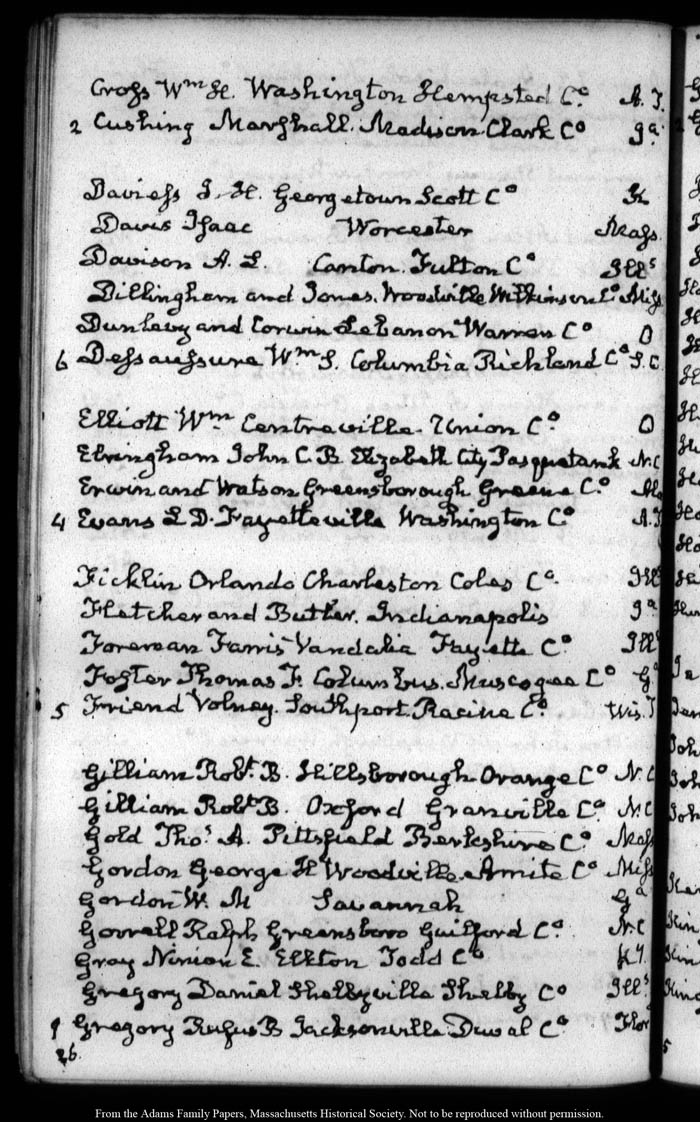 Crofs Wm H. Washington Hempsted Co. A. T.
2 Cushing Marshall. Madison Clark Co Ia.
Daviefs J. H. Georgetown Scott Co K
Davis Isaac Worcester Mafs.
Davison A. L. Canton. Fulton Co Ills
Dillingham and Jones. Woodville Wilkinson Co. Mifs
Dunlevy and Corwin Lebanon Warren Co O
6 Defsaufsure Wm S. Columbia Richland Co S. C.
Elliott Wm Centreville. Union Co. O
Ehringham John C. B. Elizabeth City Pasquotank N.C
Erwin and Watson Greensborough Greene Co. Ala
4 Evans L. D. Fayetteville Washington Co. A. T
Ficklin Orlando Charleston Coles Co. Ills
Fletcher and Butler. Indianapolis Ia
Foreman Farris Vandalia Fayette Co. Ills
Foster Thomas F. Columbus. Muscogee Co Ga
5 Friend Volney. Southport. Racine Co. Wis. T
Gilliam Robt. B. Hillsborough Orange Co N. C
Gilliam Robt B. Oxford Granville Co. N. C
Gold Thos A. Pittsfield Berkshire Co. Mafs
Gordon George H Woodville Amite Co Mifs
Gordon W. M Savannah Ga
Gorrell Ralph Greensboro Guilford Co. N. C
Gray Ninion E. Elkton Todd Co Ky.
Gregory Daniel Shelbyville Shelby Co Ills.
9 Gregory Rufus B Jacksonville Duval Co Flor
26.
From the Adams Family Papers, Massachusetts Historical Society. Not to be reproduced without permission.